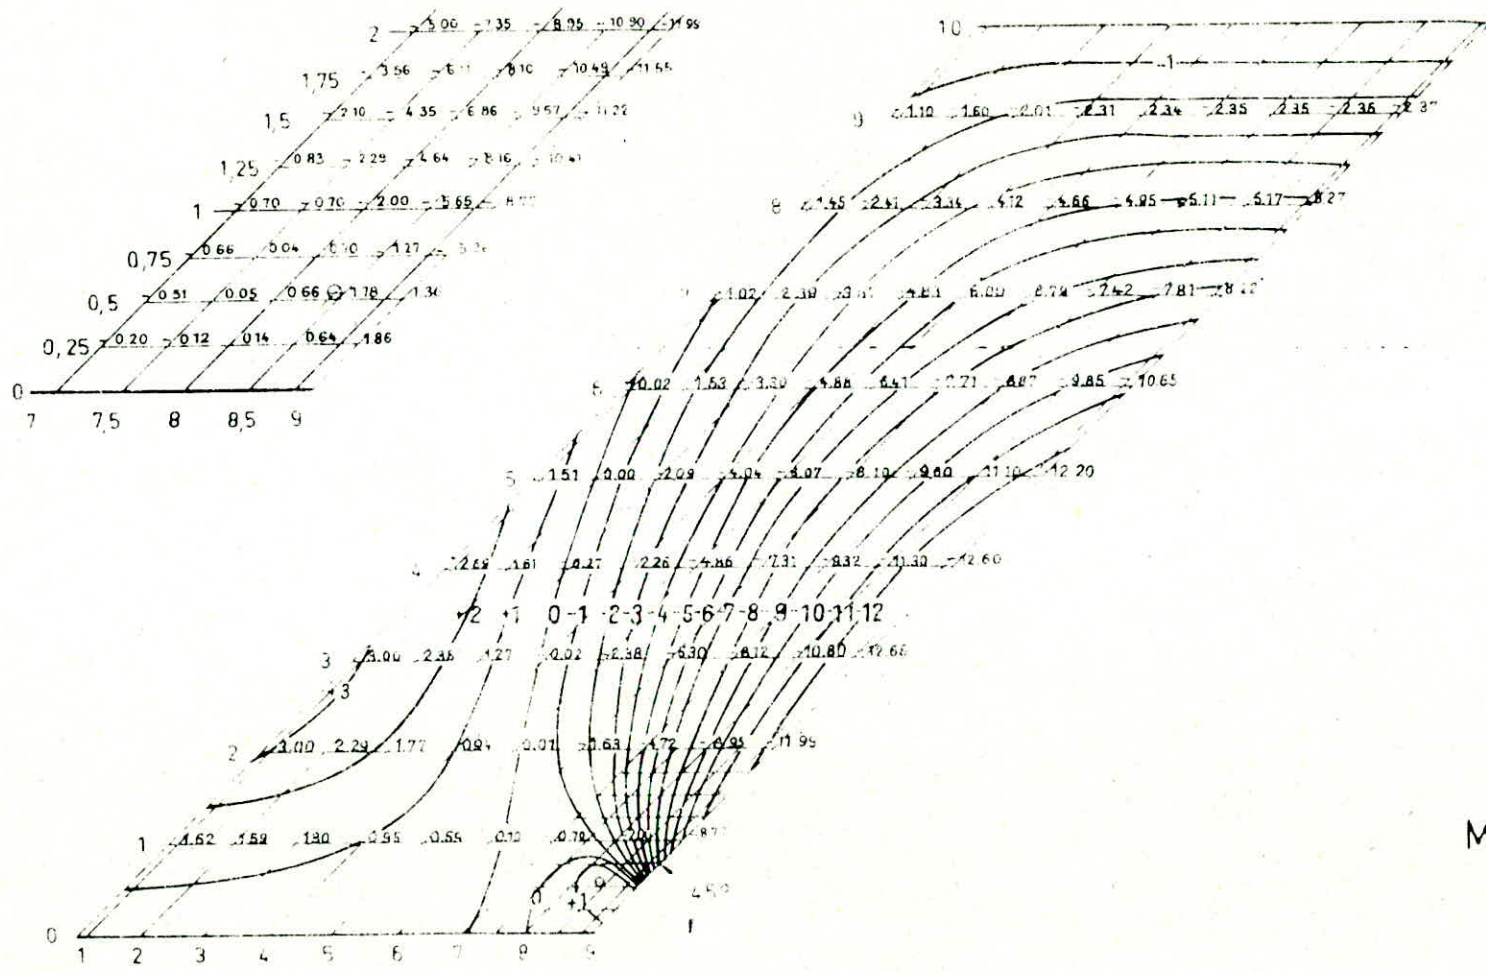 2 5.00 -7.35 -8.95 -10.90 -11.99
1,75 -3.56 -6.11 -8.10 -10.49 -11.65
1,5 -2.10 -4.35 -6.86 -9.57 -11.22
1,25 -0.83 -2.29 -4.64 -8.16 -10.41
1 -0.70 -0.70 -2.00 -5.65
0,75 0.66 0.04 1.27
0,5 0.51 0.05 0.66 1.78 1.36
0,25 0.20 0.12 0.14 0.64 1.86
0
7 7,5 8 8,5 9
10
-1
9 -1.10 -1.60 -2.01 -2.31 -2.34 -2.35 -2.35 -2.36 -2.37
8 -1.45 -2.41 -3.34 -4.12 -4.66 -4.95 -5.11 -5.17 -5.27
-1.02 -2.39 -4.83 -6.00 -6.79 -7.42 -7.81 -8.22
6 0.02 -1.53 -3.30 -4.88 -6.41 -7.71 -8.87 -9.85 -10.65
5 1.51 0.00 -2.09 -4.04 -6.07 -8.10 -9.60 -11.10 -12.20
4 2.69 1.61 0.27 -2.26 -4.86 -7.31 -9.32 -11.30 -12.60
+2 +1 0 -1 -2 -3 -4 -5 -6 -7 -8 -9 -10 -11 -12
3 3.00 2.38 1.27 0.02 -2.38 -5.30 -8.12 -10.80 -12.66
+3
2 3.00 2.29 1.77 0.94 0.01 -1.63 -4.72 -8.95 -11.99
1 1.62 1.59 1.30 0.95 0.54 0.70
0 +1
0
1 2 3 4 5 6 7 8 9
M